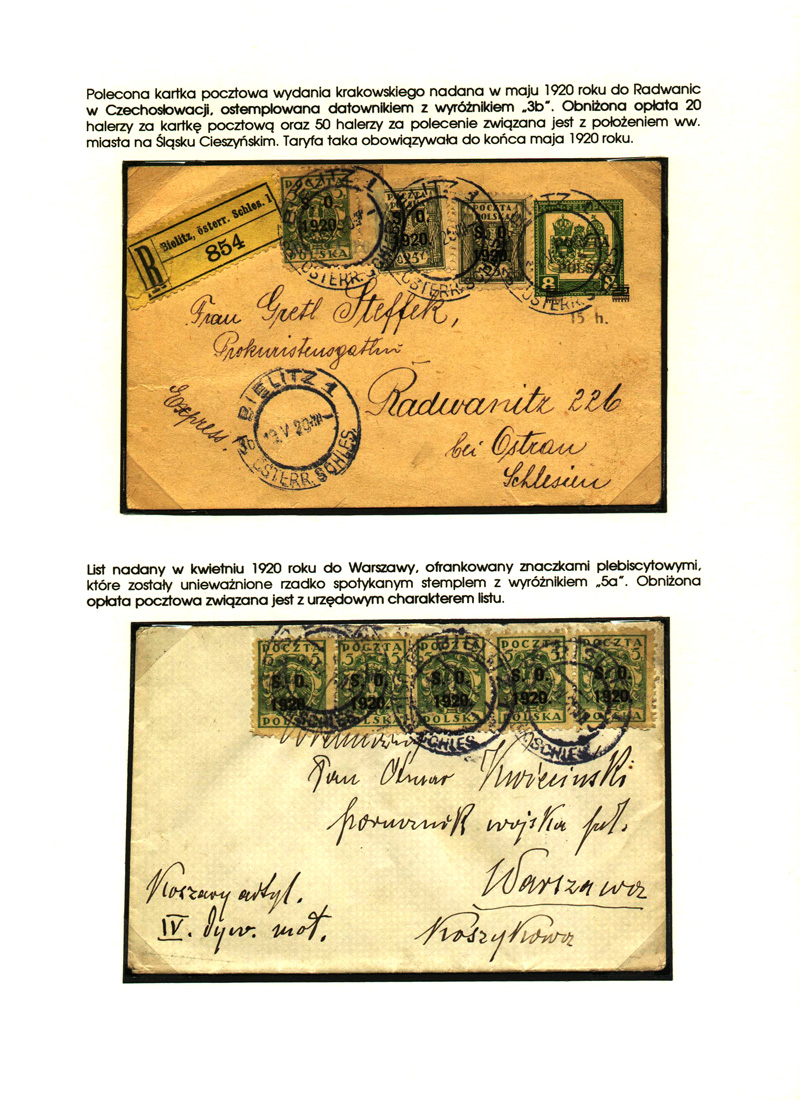 Polecona kartka pocztowa wydania krakowskiego nadana w maju 1920 roku do Radwanic
w Czechosłowacji, ostemplowana datownikiem z wyróżnikiem „3b”. Obniżona opłata 20
halerzy za kartkę pocztową oraz 50 halerzy za polecenie związana jest z położeniem ww.
miasta na Śląsku Cieszyńskim. Taryfa taka obowiązywała do końca maja 1920 roku.
R
Bielitz, österr. Schles. 1
854
POCZTA
S. O.
1920.
POLSKA
POCZTA
POLSKA
S. O.
1920.
25
POCZTA
POLSKA
S. O.
1920
POCZTA
POLSKA
8
15 h.
BIELITZ 1
ÖSTERR. SCHLES.
Frau Gretl Steffek,
Prokuristensgattin
Express.
Radwanitz 226
bei Ostrau
Schlesien
BIELITZ 1
3b
ÖSTERR. SCHLES.
List nadany w kwietniu 1920 roku do Warszawy, ofrankowany znaczkami plebiscytowymi,
które zostały unieważnione rzadko spotykanym stemplem z wyróżnikiem „5a”. Obniżona
opłata pocztowa związana jest z urzędowym charakterem listu.
5 POCZTA 5
S. O.
1920.
POLSKA
5 POCZTA 5
S. O.
1920.
POLSKA
POCZTA
S. O.
1920.
POLSKA
5 POCZTA 5
S. O.
1920.
POLSKA
POCZTA
S. O.
1920.
POLSKA
SCHLES.
Pan Kwieciński
porucznik wojska pol.
Warszawa
Koszykowa
Koszary artyl.
IV. dyw. mot.